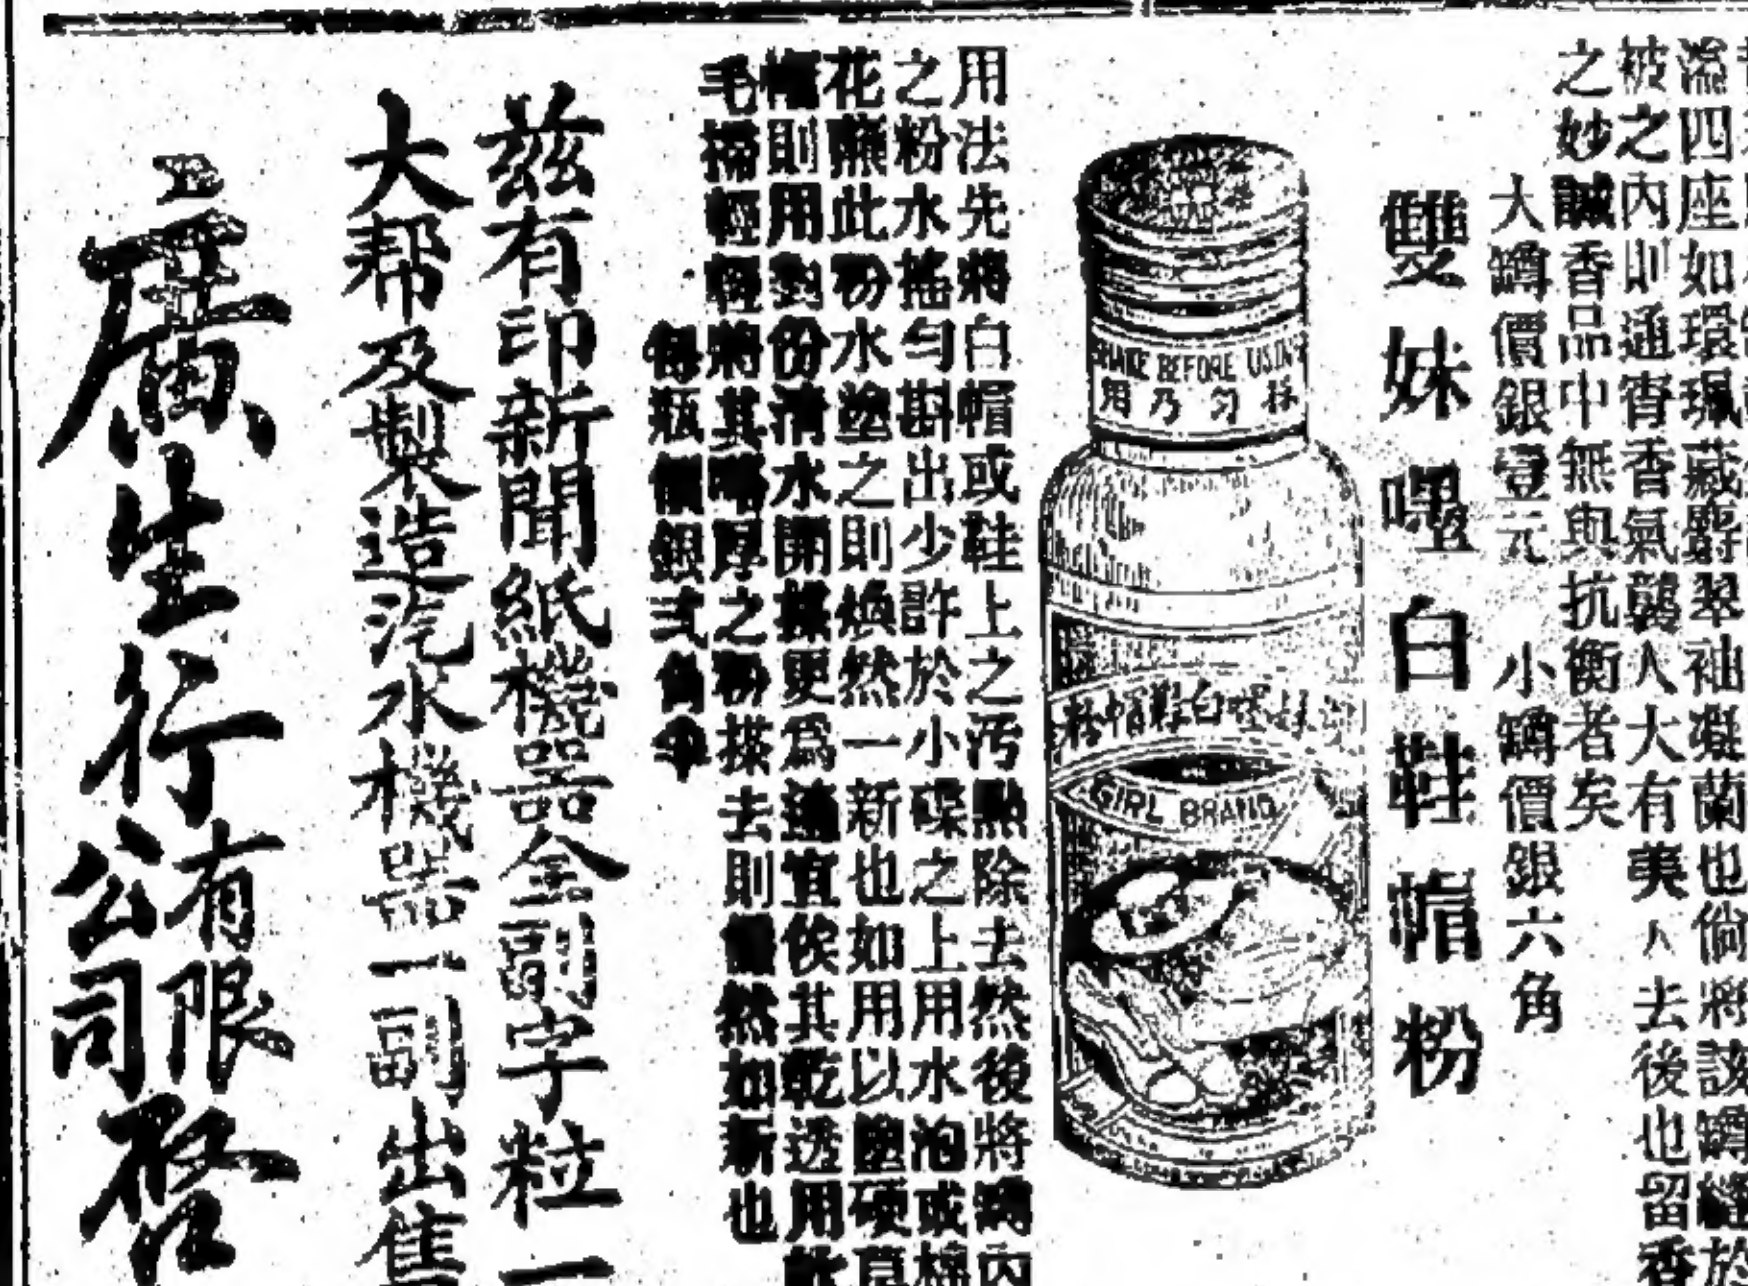 溢四座如環珮藏麝翠袖凝蘭也倘將該罇縫於
被之內則通宵香氣襲人大有美人去後也留香
之妙誠香品中無與抗衡者矣
大罇價銀壹元 小罇價銀六角
雙妹嘜白鞋帽粉
SHAKE BEFORE USING
用乃匀
粉帽鞋白嘜妹
GIRL BRAND
用法先將白帽或鞋上之污點除去然後將罇內
之粉水搖勻斟出少許於小碟之上用水泡或棉
花蘸此粉水塗之則煥然一新也如用以塗硬草
帽則用對份清水開搽更為適宜俟其乾透用軟
毛掃輕輕將其略厚之粉搽去則儼然如新也
每瓶價銀弍角半
茲有印新聞紙機器全副字粒一
大帮及製造汽水機器一副出售
廣生行有限公司啓